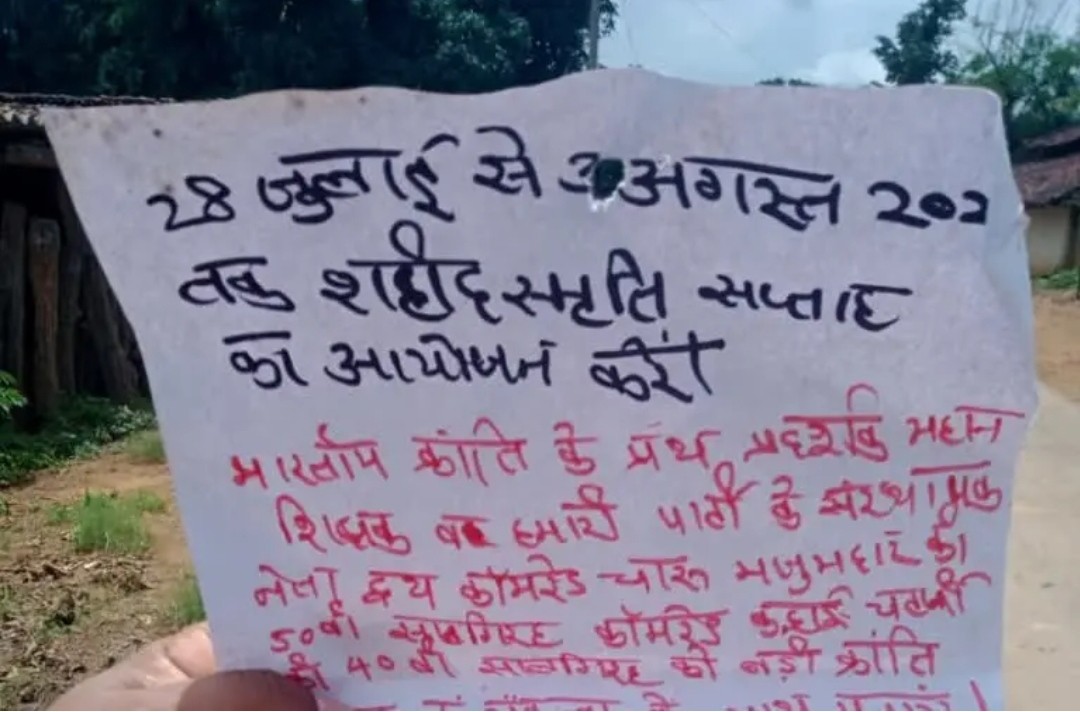 28 जुलाई से 3 अगस्त 202
तक शहीद स्मृति सप्ताह
का आयोजन करें
भारतीय क्रांति के प्रथ प्रदर्शक महान
शिक्षक व हमारी पार्टी के संस्थापक
नेता द्वय कॉमरेड चारू मजुमदार की
50वी सालगिरह कॉमरेड कन्हाई चटर्जी
की 40 वी सालगिरह को बड़ी क्रांति
के साथ मनाएं।